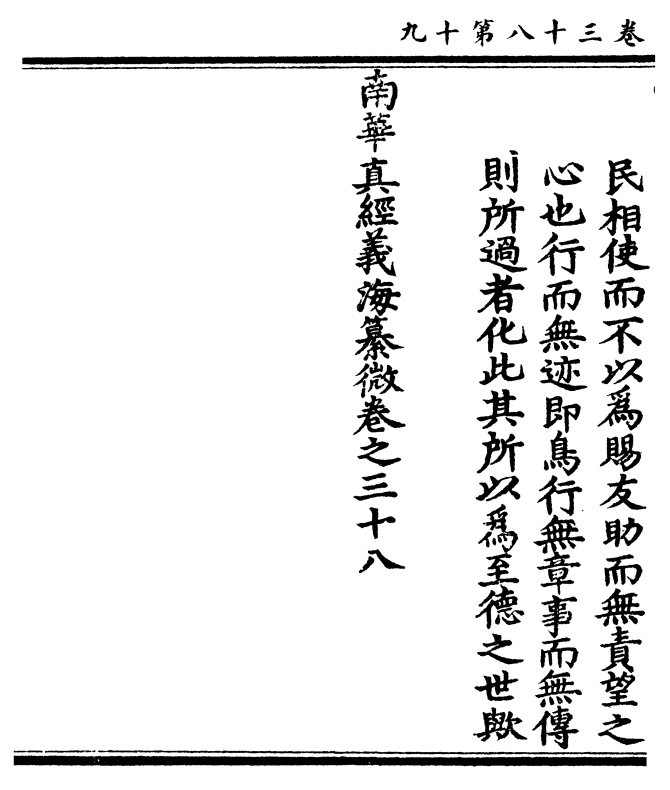 卷三十八第十九
民相使而不以爲賜友助而無責望之
心也行而無迹即鳥行無章事而無傳
則所過者化此其所以爲至德之世歟
南華真經義海纂微卷之三十八